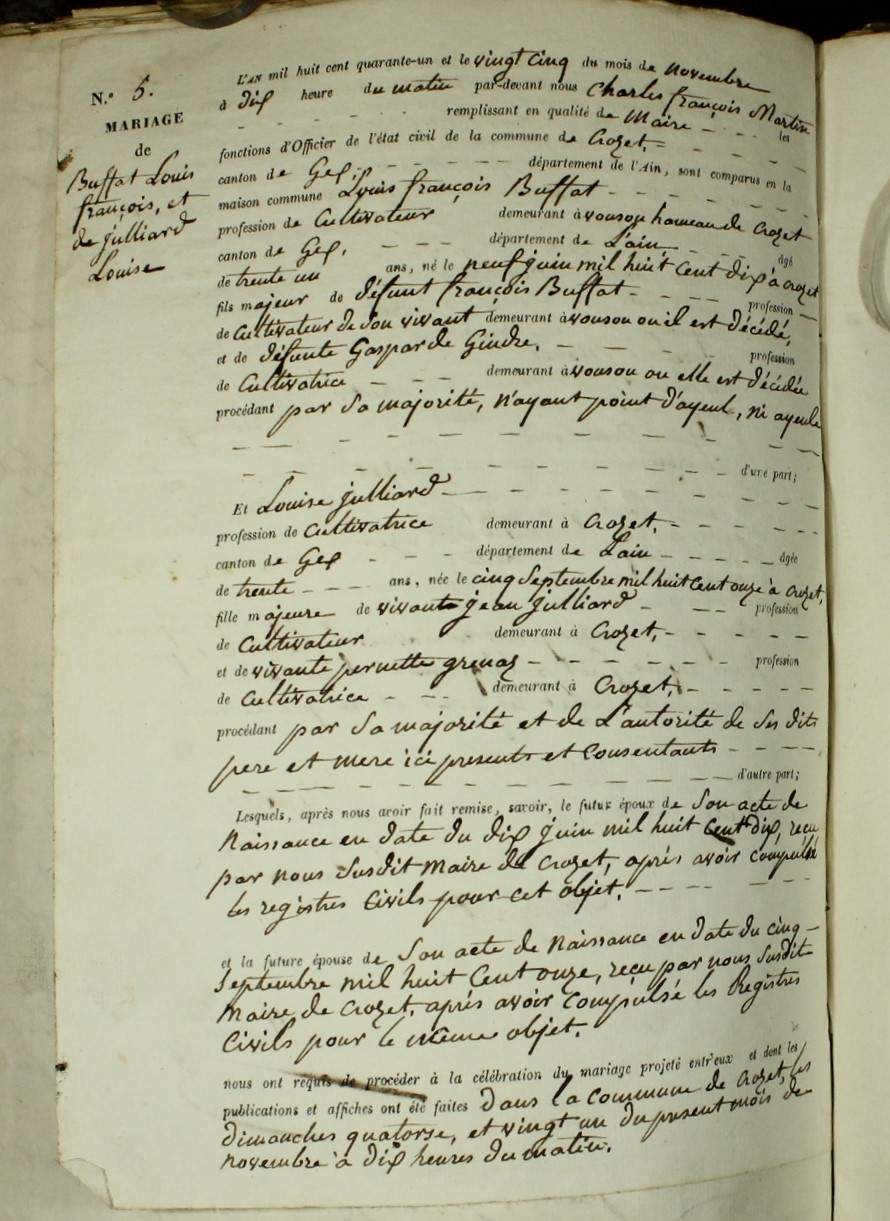 N.° 5.
MARIAGE
de
Buffat Louis
françois, et
de julliard
Louise
L'AN mil huit cent quarante-un et le vingt cinq du mois de novembre
à dix heure du matin par-devant nous Charles françois Martin
remplissant en qualité de Maire les
fonctions d'Officier de l'état civil de la commune de Crozet,
canton de Gex, département de l'Ain, sont comparus en la
maison commune Louis françois Buffat
profession de Cultivateur demeurant à vouson hameau de Crozet
canton de Gex, département de L'ain âgé
de trente un ans, né le neuf juin mil huit Cent dix à crozet
fils majeur de défunt françois Buffat profession
de Cultivateur de son vivant demeurant à vouson ou il est décédé,
et de défunte Gasparde Gindre, profession
de Cultivatrice demeurant à vouson ou elle est décédée
procédant par sa majorité, n'ayant point d'ayeul, ni ayeule
d'une part;
Et Louise julliard
profession de Cultivatrice demeurant à Crozet,
canton de Gex département de Lain âgée
de trente ans, née le cinq Septembre mil huit Cent onze à crozet,
fille majeure de vivant jean julliard profession
de Cultivateur demeurant à Crozet,
et de vivante pernette grenaz profession
de Cultivatrice demeurant à Crozet,
procédant par sa majorité et de L'autorité de ses dits
pere et mere ici presents et Consentants
d'autre part;
Lesquels, après nous avoir fait remise, savoir, le futur époux de Son acte de
Naissance en date du dix juin mil huit Cent dix, reçu
par nous Susdit Maire de Crozet, après avoir compulsé
les registres Civils pour cet objet.
et la future épouse de Son acte de Naissance en date du cinq
Septembre mil huit Cent onze, reçu par nous Susdit
Maire de Crozet, après avoir Compulsé les Registres
Civils pour le même objet.
nous ont requis de procéder à la célébration du mariage projeté entr'eux et dont les
publications et affiches ont été faites Dans la Commune de Crozet, les
dimanches quatorse, et vingt un du present mois de
novembre à dix heures du matin.